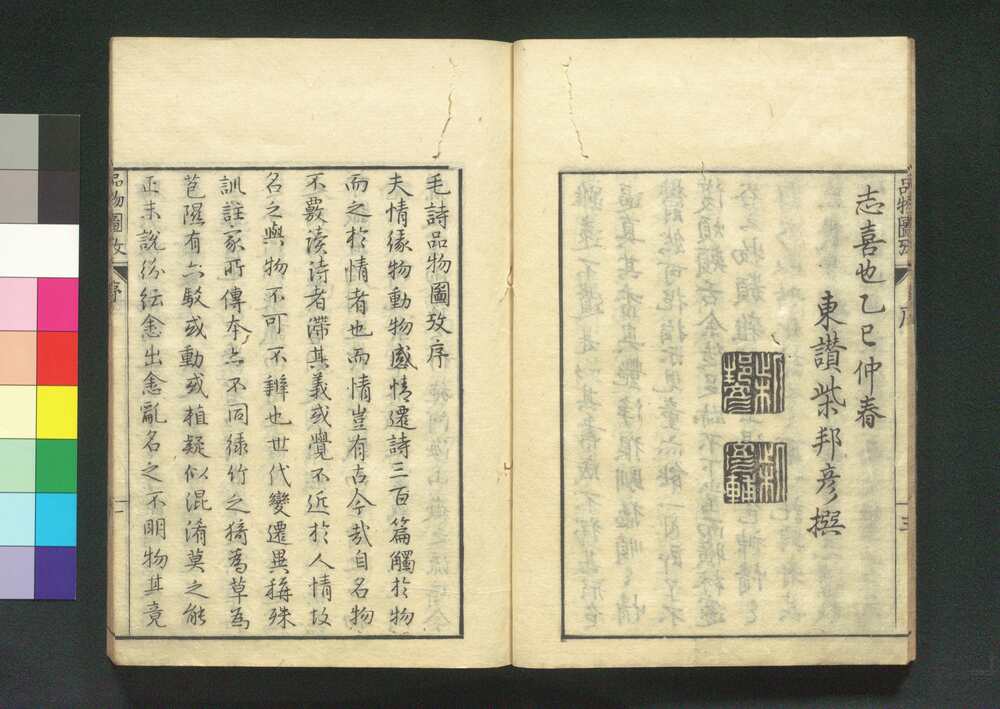 志喜也乙巳仲春
東讃柴邦彦撰
柴邦彦
柴彦輔
品物圖攷
序
三
毛詩品物圖攷序
夫情緣物動物感情遷詩三百篇觸於物
而之於情者也而情豈有古今哉自名物
不覈讀詩者滯其義或覺不近於人情故
名之與物不可不辨也世代變遷異稱殊
訓註家所傳本亦不同綠竹之猗為草為
苞隰有六駁或動或植疑似混淆莫之能
正末說紛紜愈出愈亂名之不明物其竟
品物圖攷
序
一